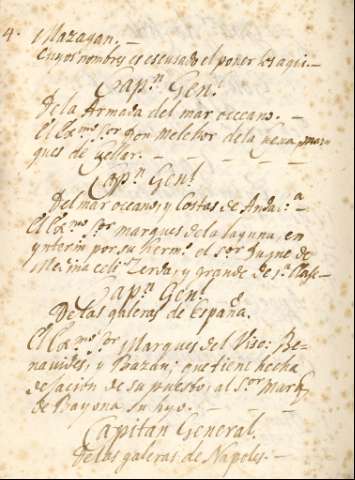 4. Mazagan. —
cuyos nombres es escusado el poner los aqui. —
Cap.n Gen.l
De la Armada del mar occeano. —
El Ex.mo s.or Don Melchor de la Cueva, mar
ques de Cuellar. — — — —
Cap.n Gen.l
Del mar oceano, y Costas de Andal.a
El Ex.mo s.or marques de la laguna, en
ynterin por su herm.o el s.or Duque de
Medina celi, Zerda, y grande de 1.a Clase —
Cap.n Gen.l
De las galeras de España.
El Ex.mo s.or Marques del Viso: Be-
navides, y Bazan; que tiene hecha
dejacion de su puesto, al s.or Mark.s
de Bayona su hijo. — — —
Capitan General,
De las galeras de Napoles. —